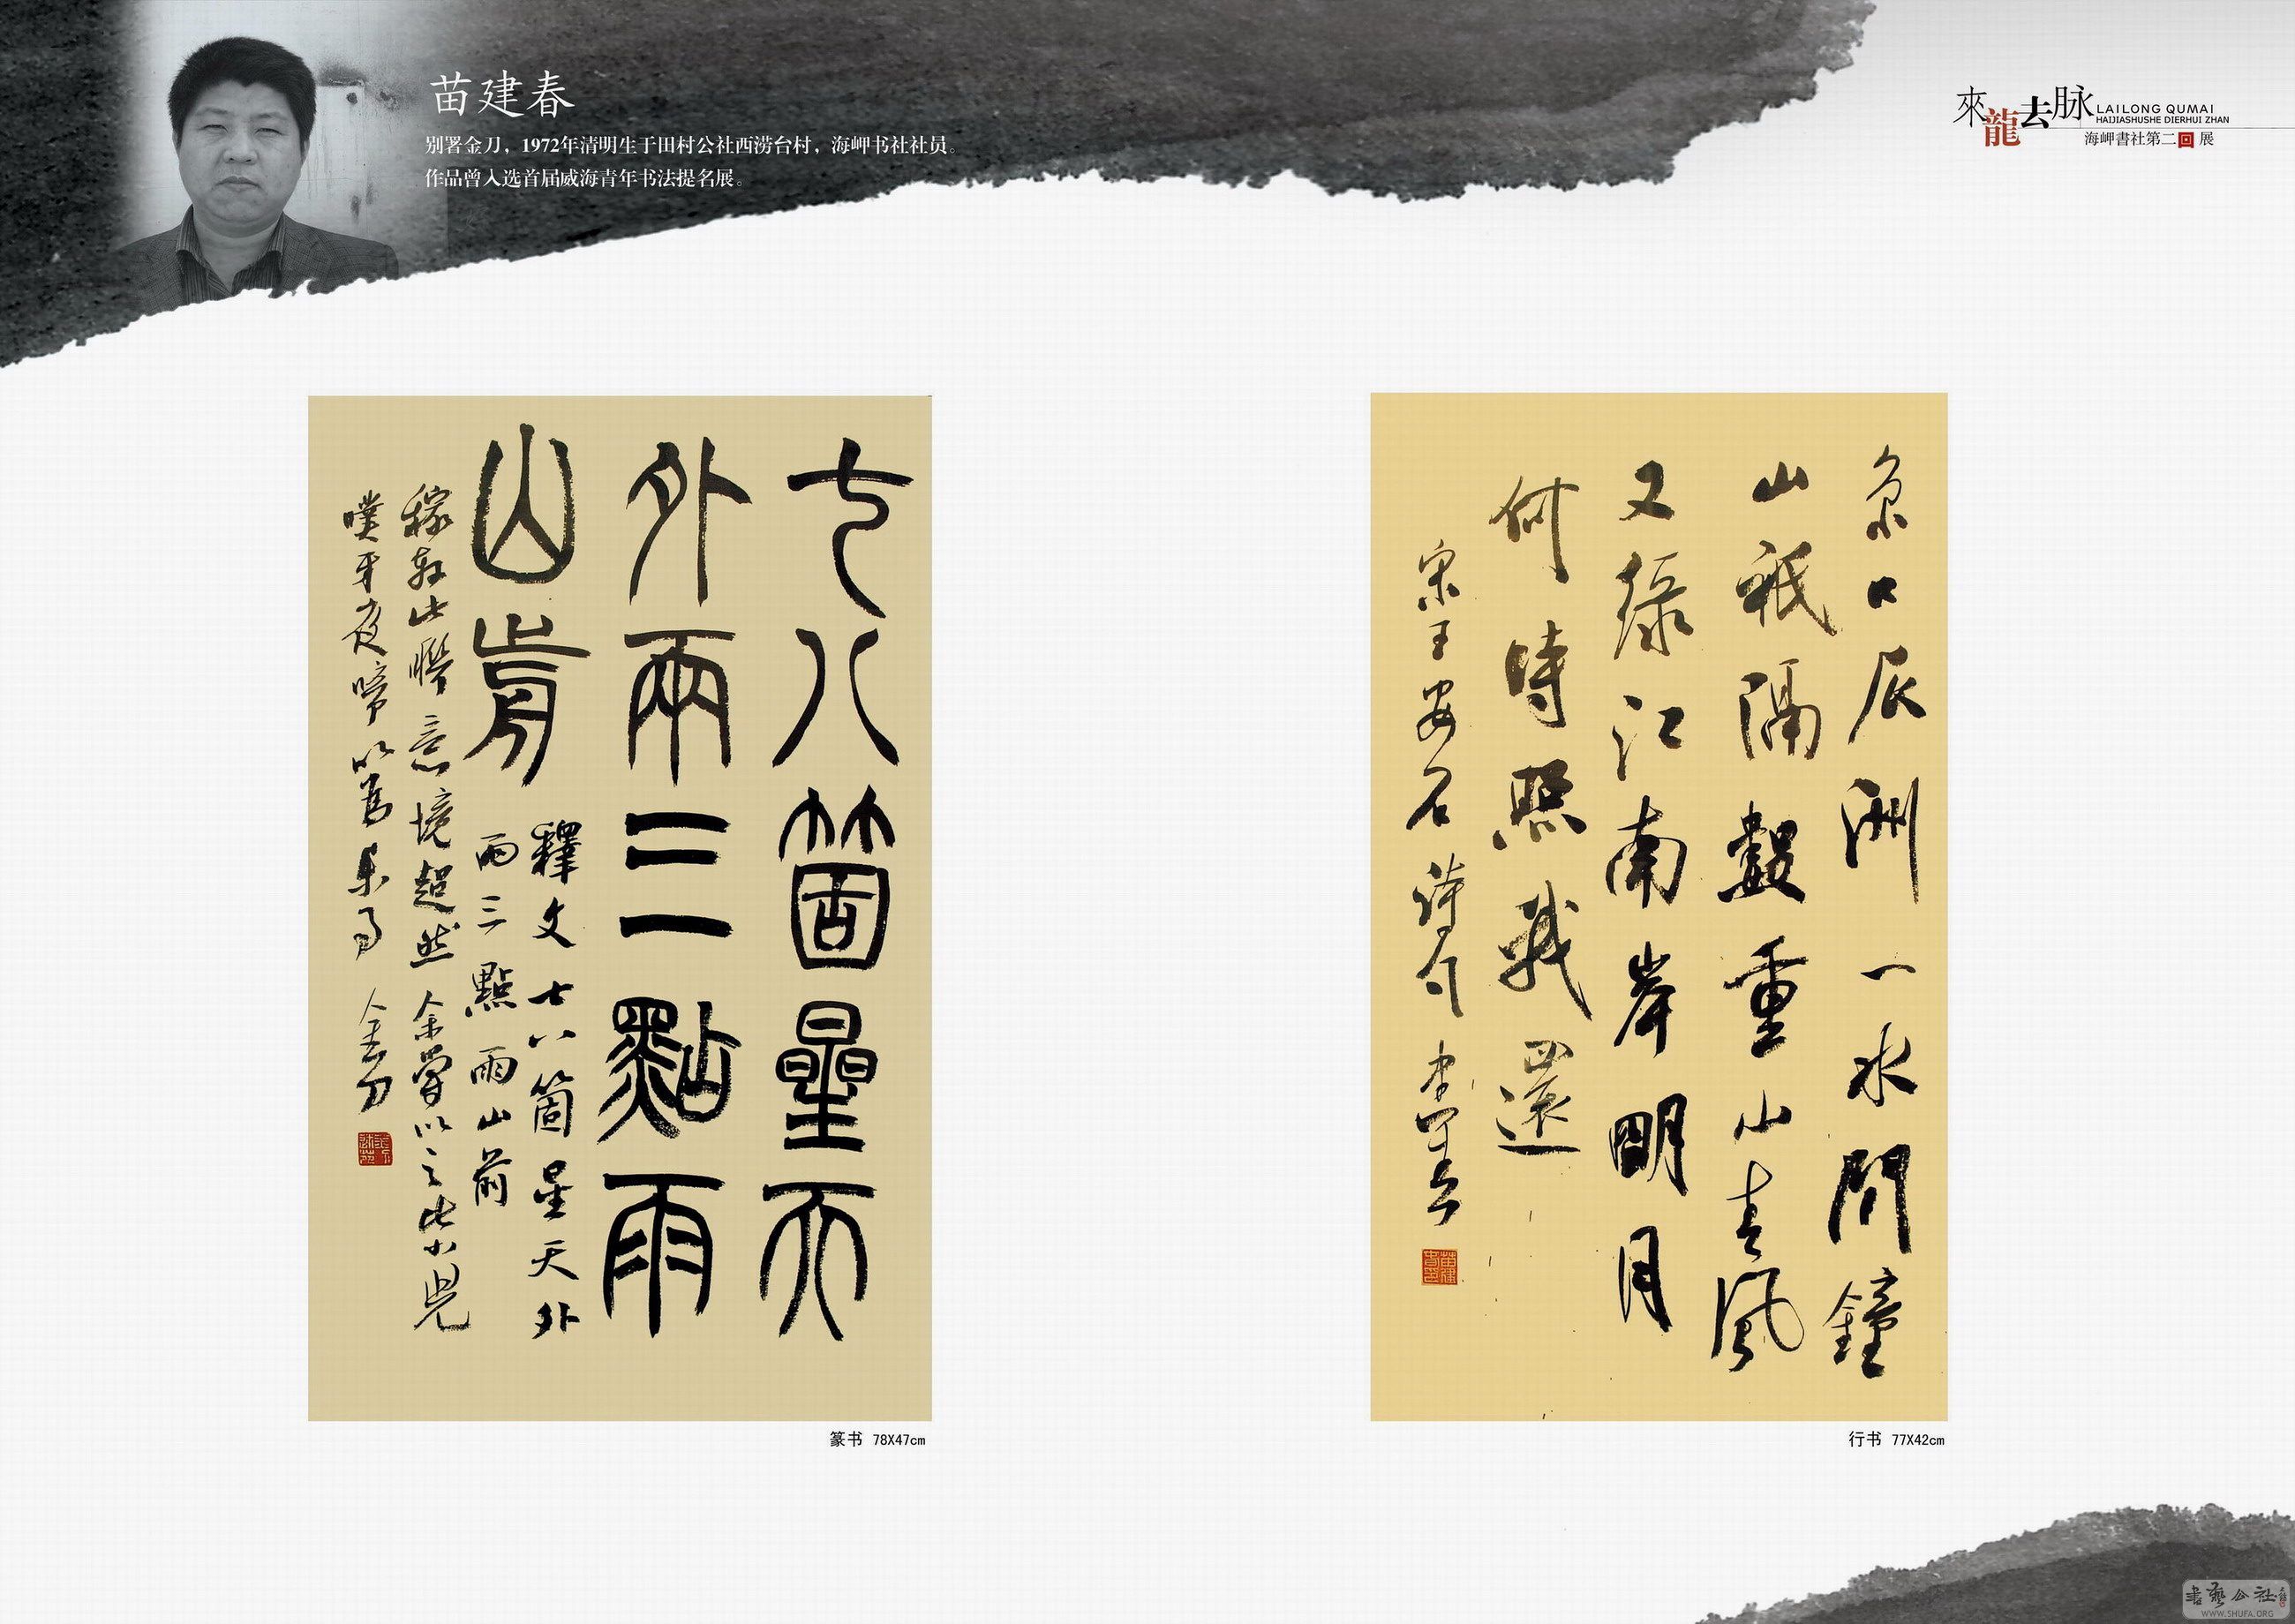 苗建春
别署金刀，1972年清明生于田村公社西涝台村，海岬书社社员。
作品曾入选首届威海青年书法提名展。
來龍去脉
LAILONG QUMAI
HAIJIASHUSHE DIERHUI ZHAN
海岬書社第二回展
七八箇星天
外兩三點雨
山前
釋文七八箇星天外
兩三點雨山前
稼軒此聯意境超然 余嘗以之
夜啼以為樂 金刀
篆书 78X47cm
京口瓜洲一水間鐘
山祇隔數重山春風
又綠江南岸明月
何時照我還
宋王安石詩句
苗建春印
行书 77X42cm
書藝公社
WWW.SHUFA.ORG